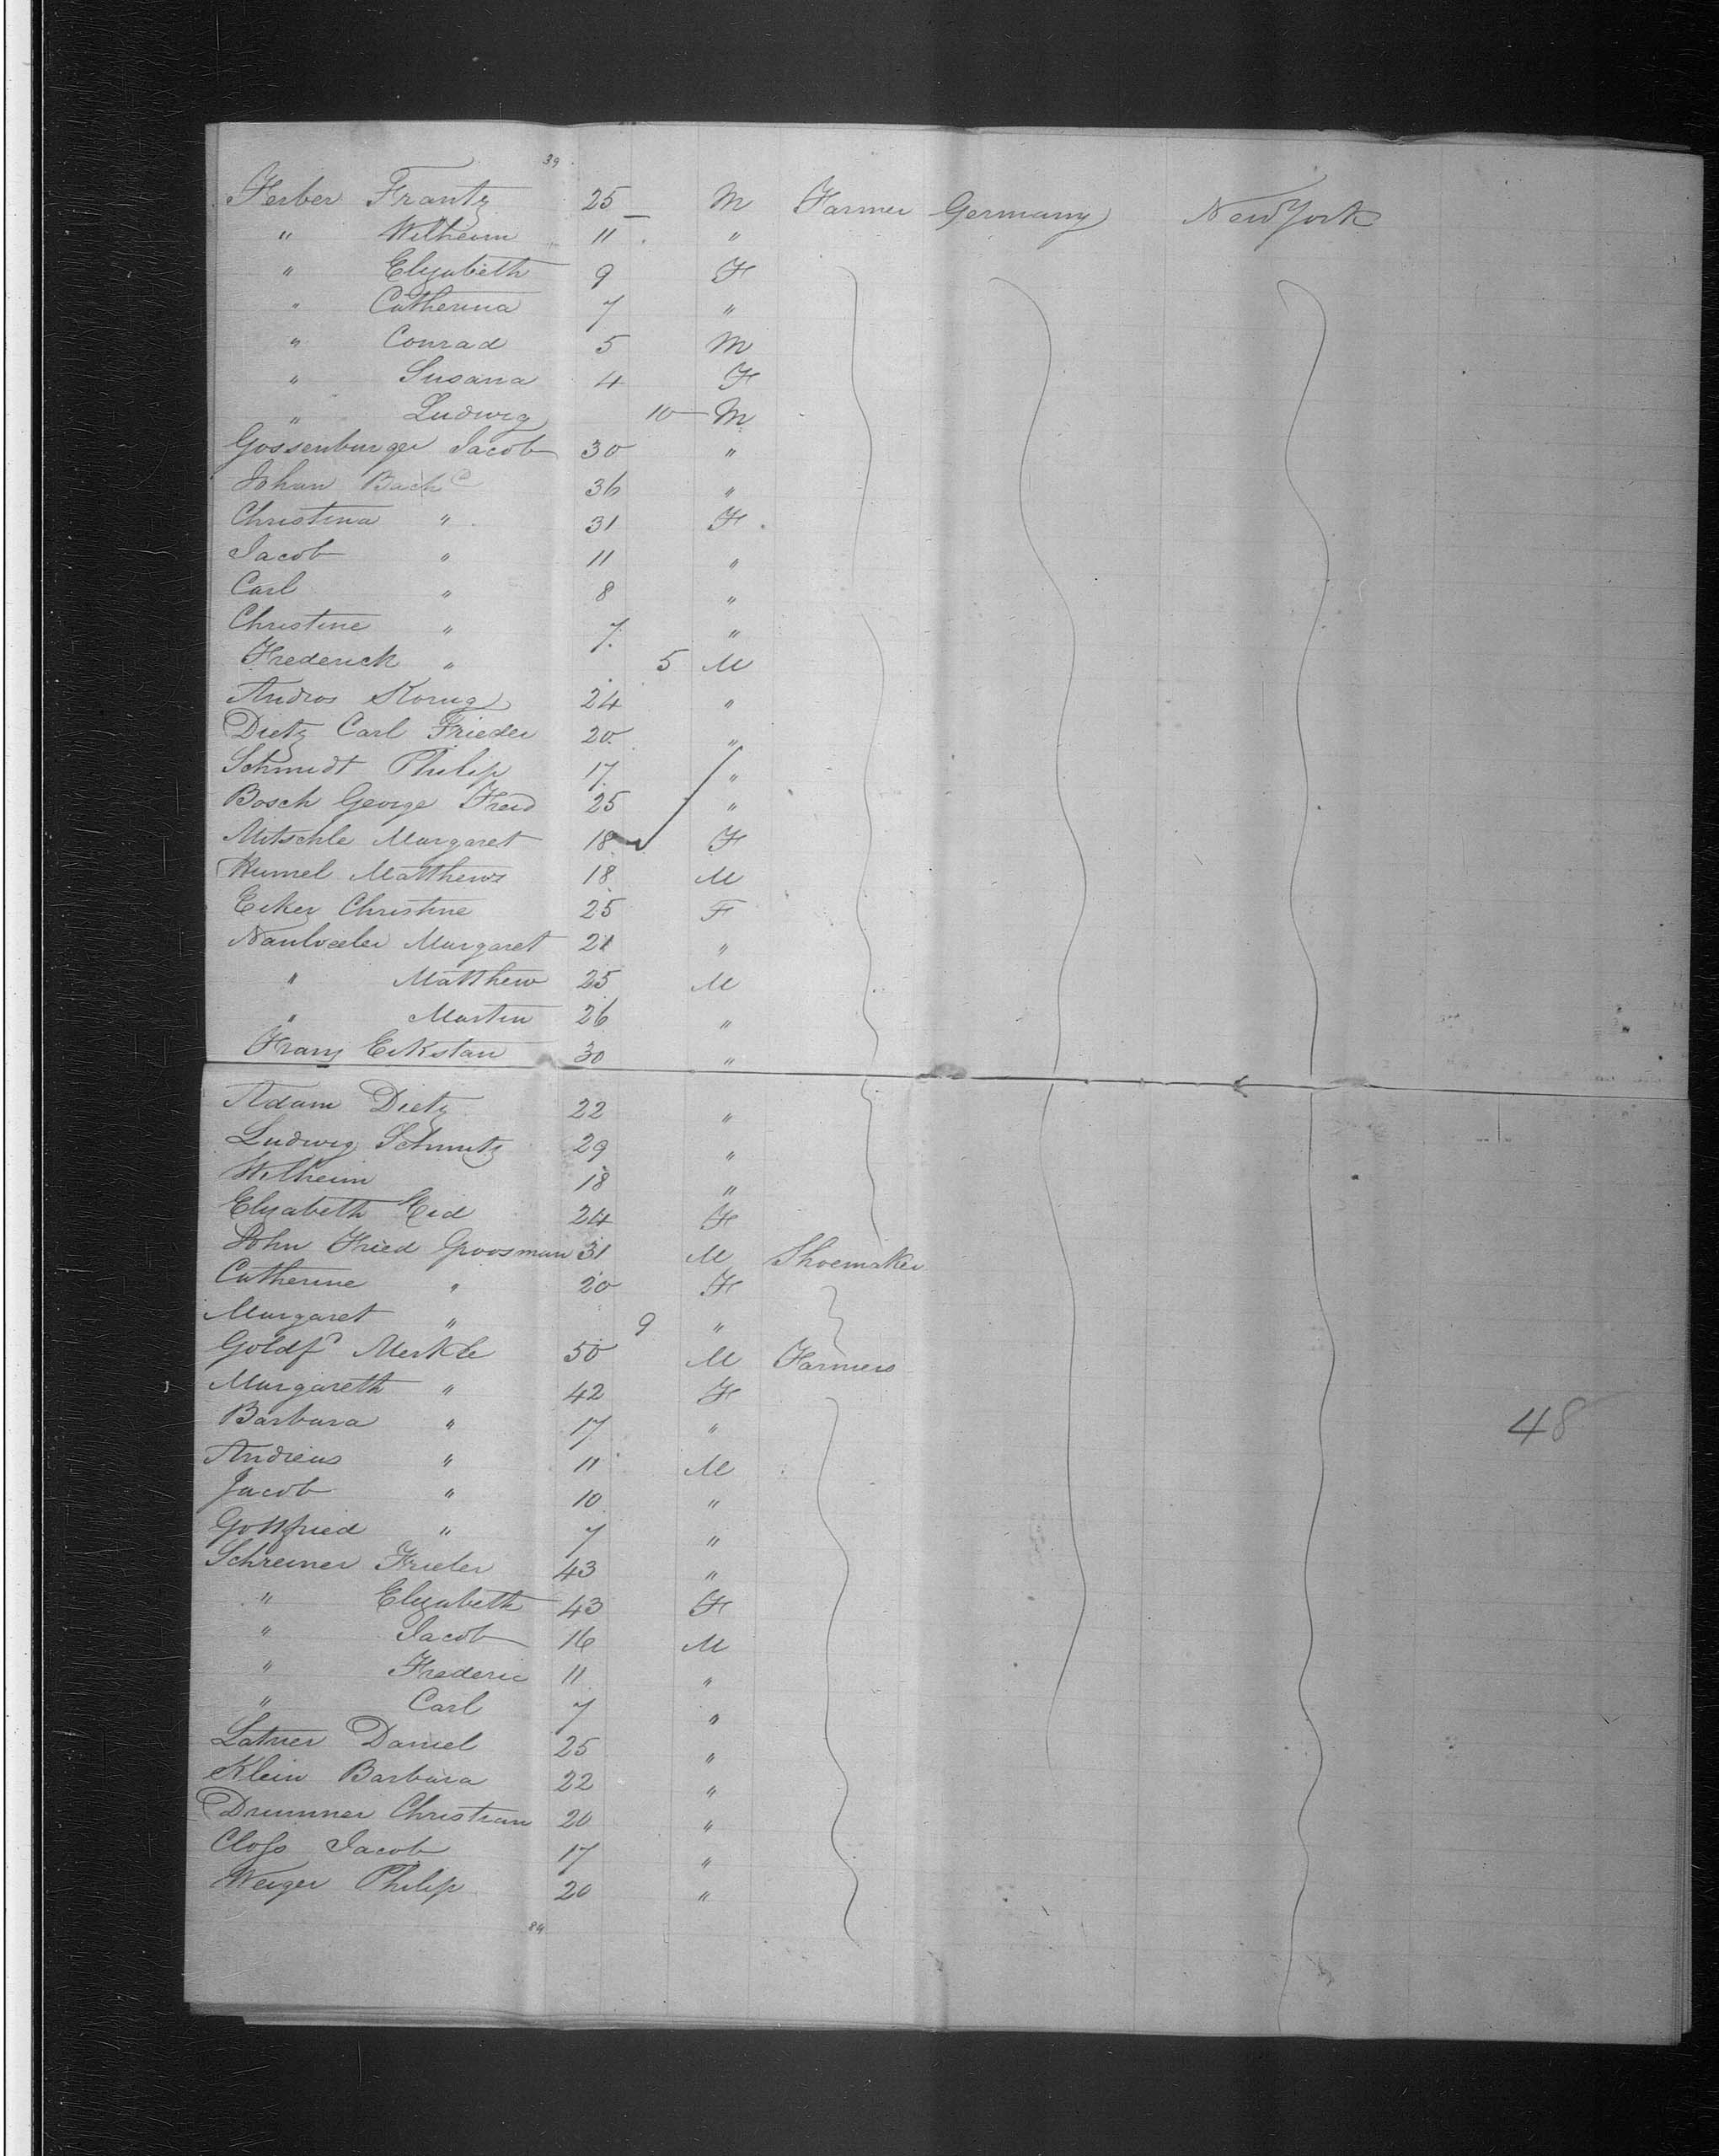 39
Ferber Frantz 25 — M Farmer Germany New York
" Wilheim 11 "
" Elizabeth 9 F
" Catherina 7 "
" Conrad 5 M
" Susana 4 F
" Ludwig 10 — M
Gossenburger Jacob 30 "
Johan Bach 36 "
Christina " 31 F
Jacob " 11 "
Carl " 8 "
Christine " 7 "
Frederick " 5 M
Andros Konig 24 "
Dietz Carl Frieder 20 "
Schmidt Philip 17 "
Bosch George Fried 25 "
Mitschle Margaret 18 F
Humel Matthews 18 M
Eckey Christine 25 F
Margaret 21 "
" Matthew 25 M
" Martin 26 "
Franz Eckstan 30 "
Adam Dietz 22 "
Ludwig Schmitz 29 "
Wilheim 18 "
Elizabeth Eid 24 F
John Fried Groosman 31 M Shoemaker
Catherine " 20 F
Margaret " 9 "
Goldf Merkle 50 M Farmers
Margareth " 42 F
Barbara " 17 "
Andreus " 11 M
Jacob " 10 "
48
Gottfried " 7 "
Schreiner Frieler 43 "
" Elizabeth 43 F
" Jacob 16 M
" Frederic 11 "
" Carl 7 "
Latner Daniel 25 "
Klein Barbara 22 "
Drummer Christian 20 "
Closs Jacob 17 "
Weiger Philip 20 "
84